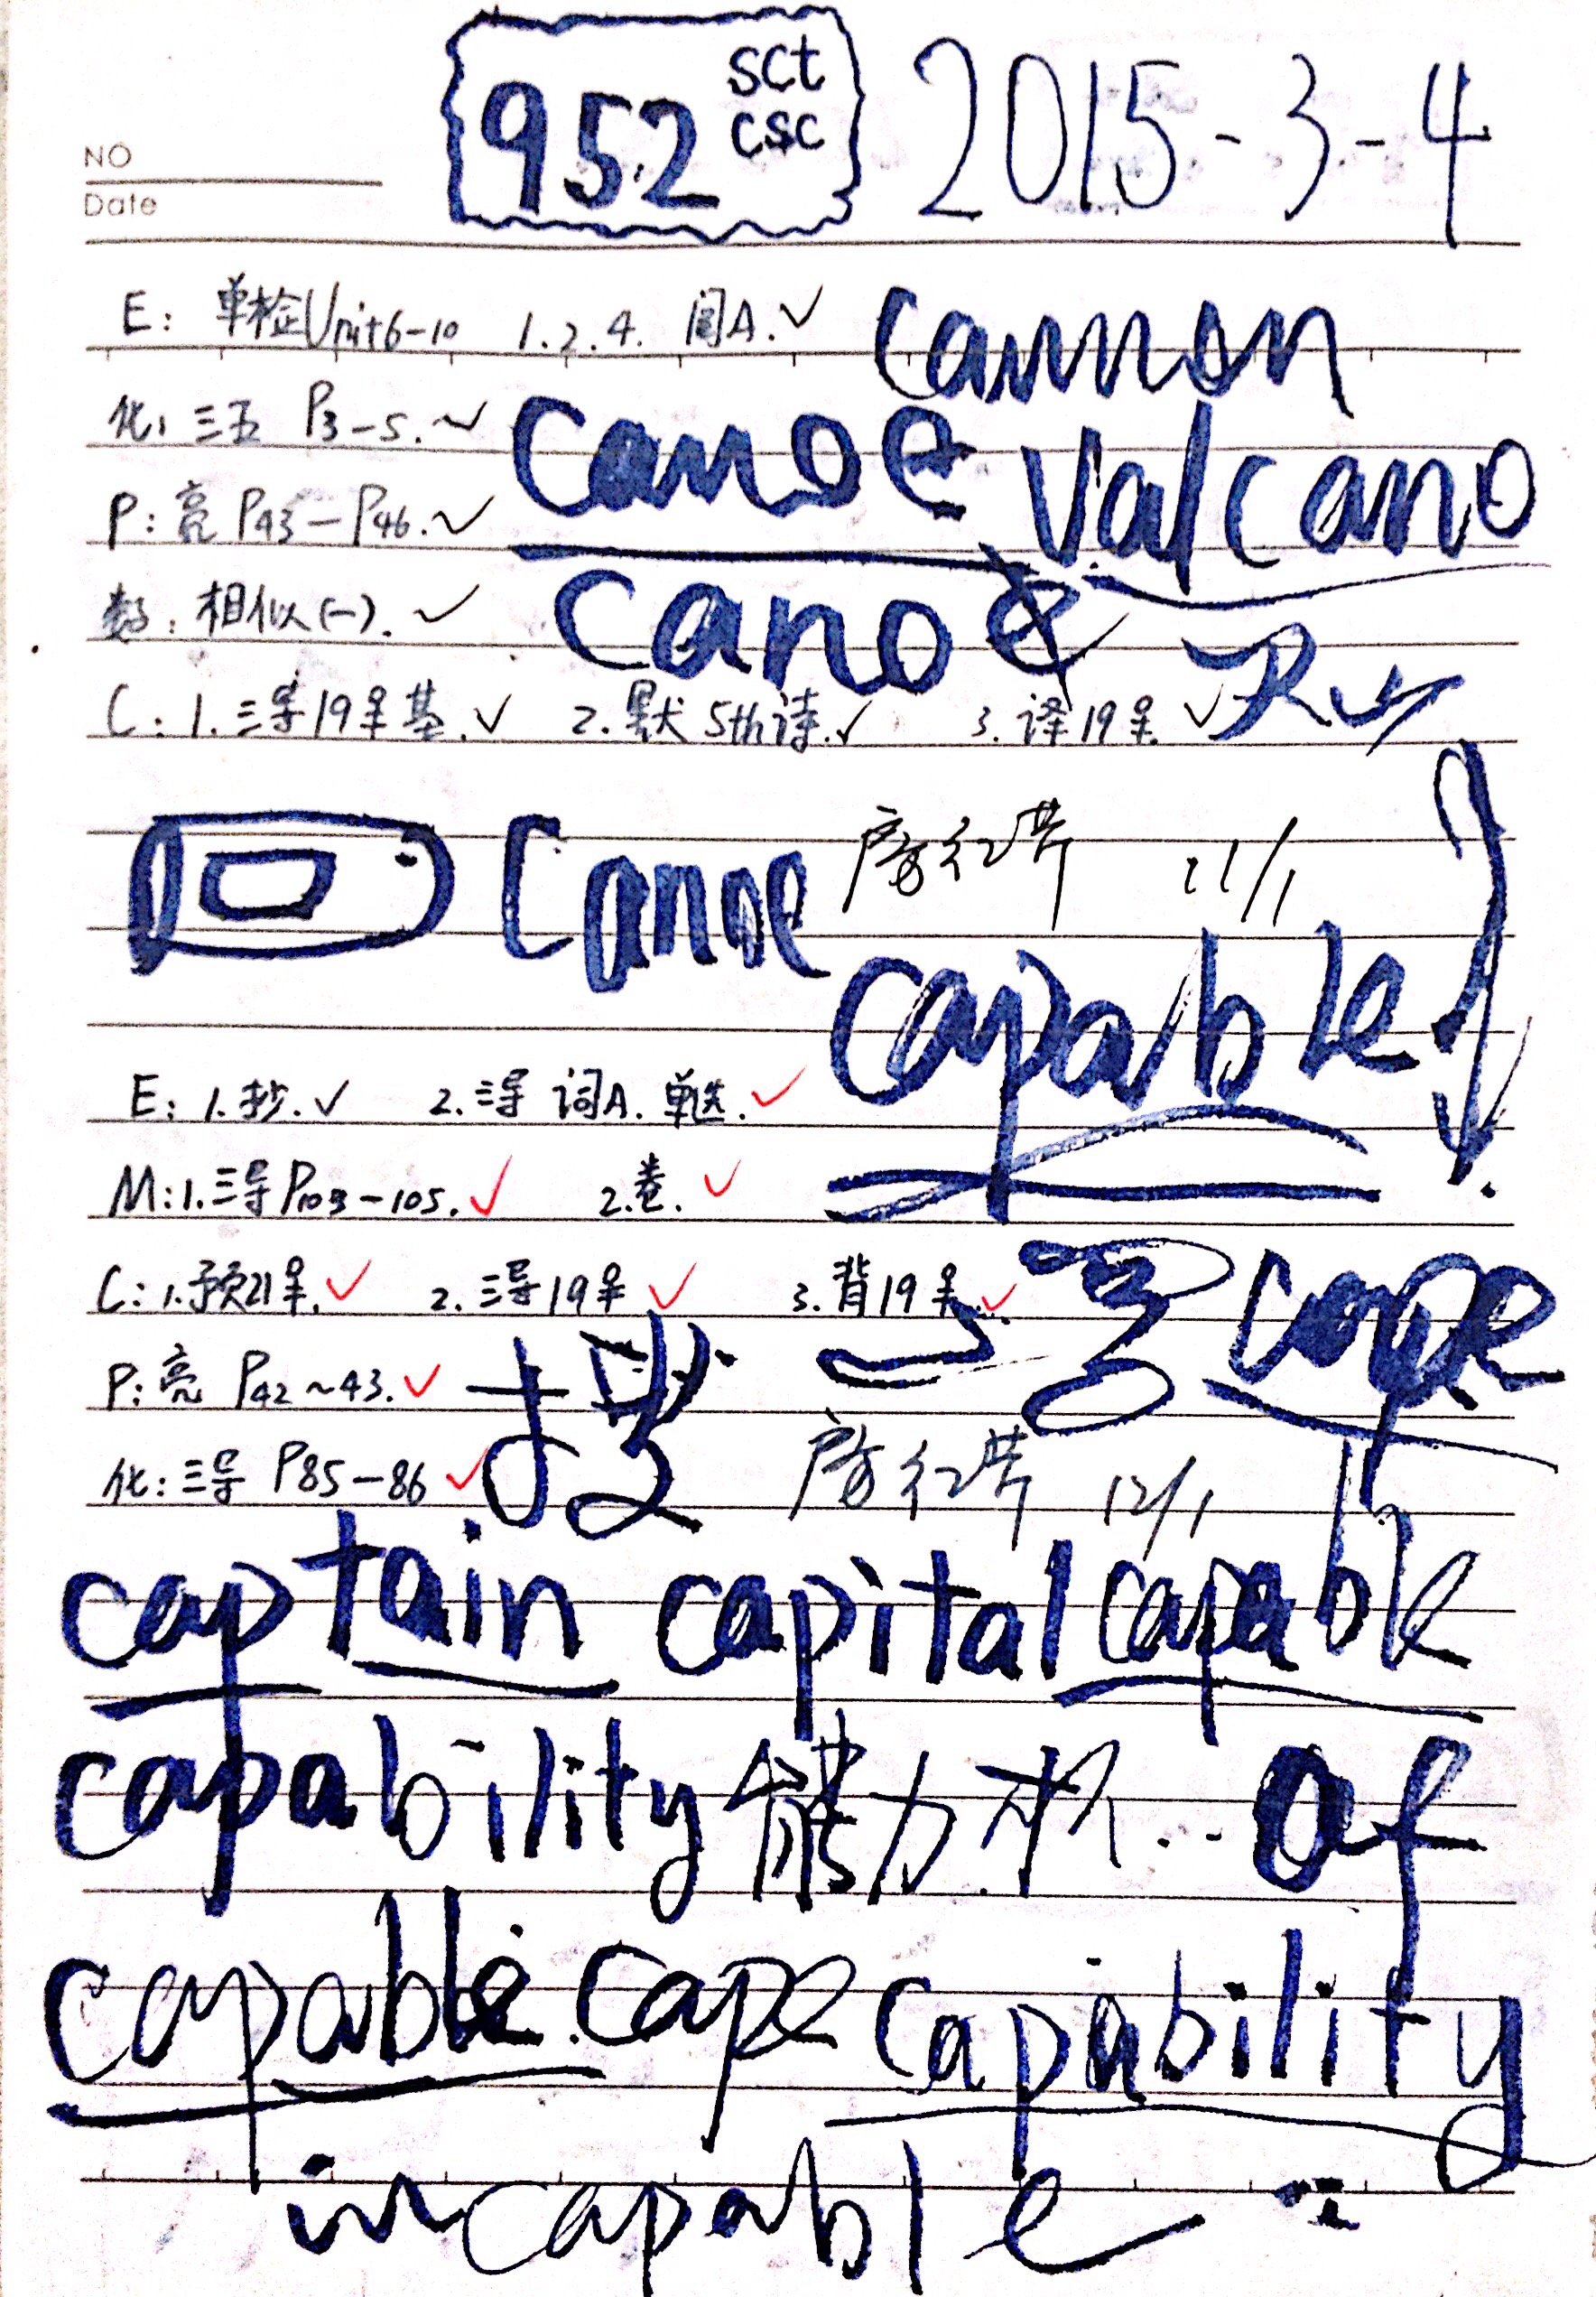 952 sct csc 2015-3-4
NO
Date
E: 单检Unit6-10 1.2.4. 阅A.✓ cannon
化: 三五 P3-5.~✓ canoe
P: 亮 P43-P46.~✓ valcano
数: 相似(一).✓ canoe
C: 1.三导19课基.✓ 2.默5th诗.✓ 3.译19课.✓ 火山
canoe 11/1
capable
E: 1.抄.✓ 2.三导 词A. 单选.✓
M: 1.三导P103-105.✓ 2.卷.✓
C: 1.预21课.✓ 2.三导19课✓ 3.背19课.✓ cape
P: 亮 P42~43.✓
化: 三导 P85-86✓ 12/1
captain capital capable
capability 能力 of
capable cape capability
incapable